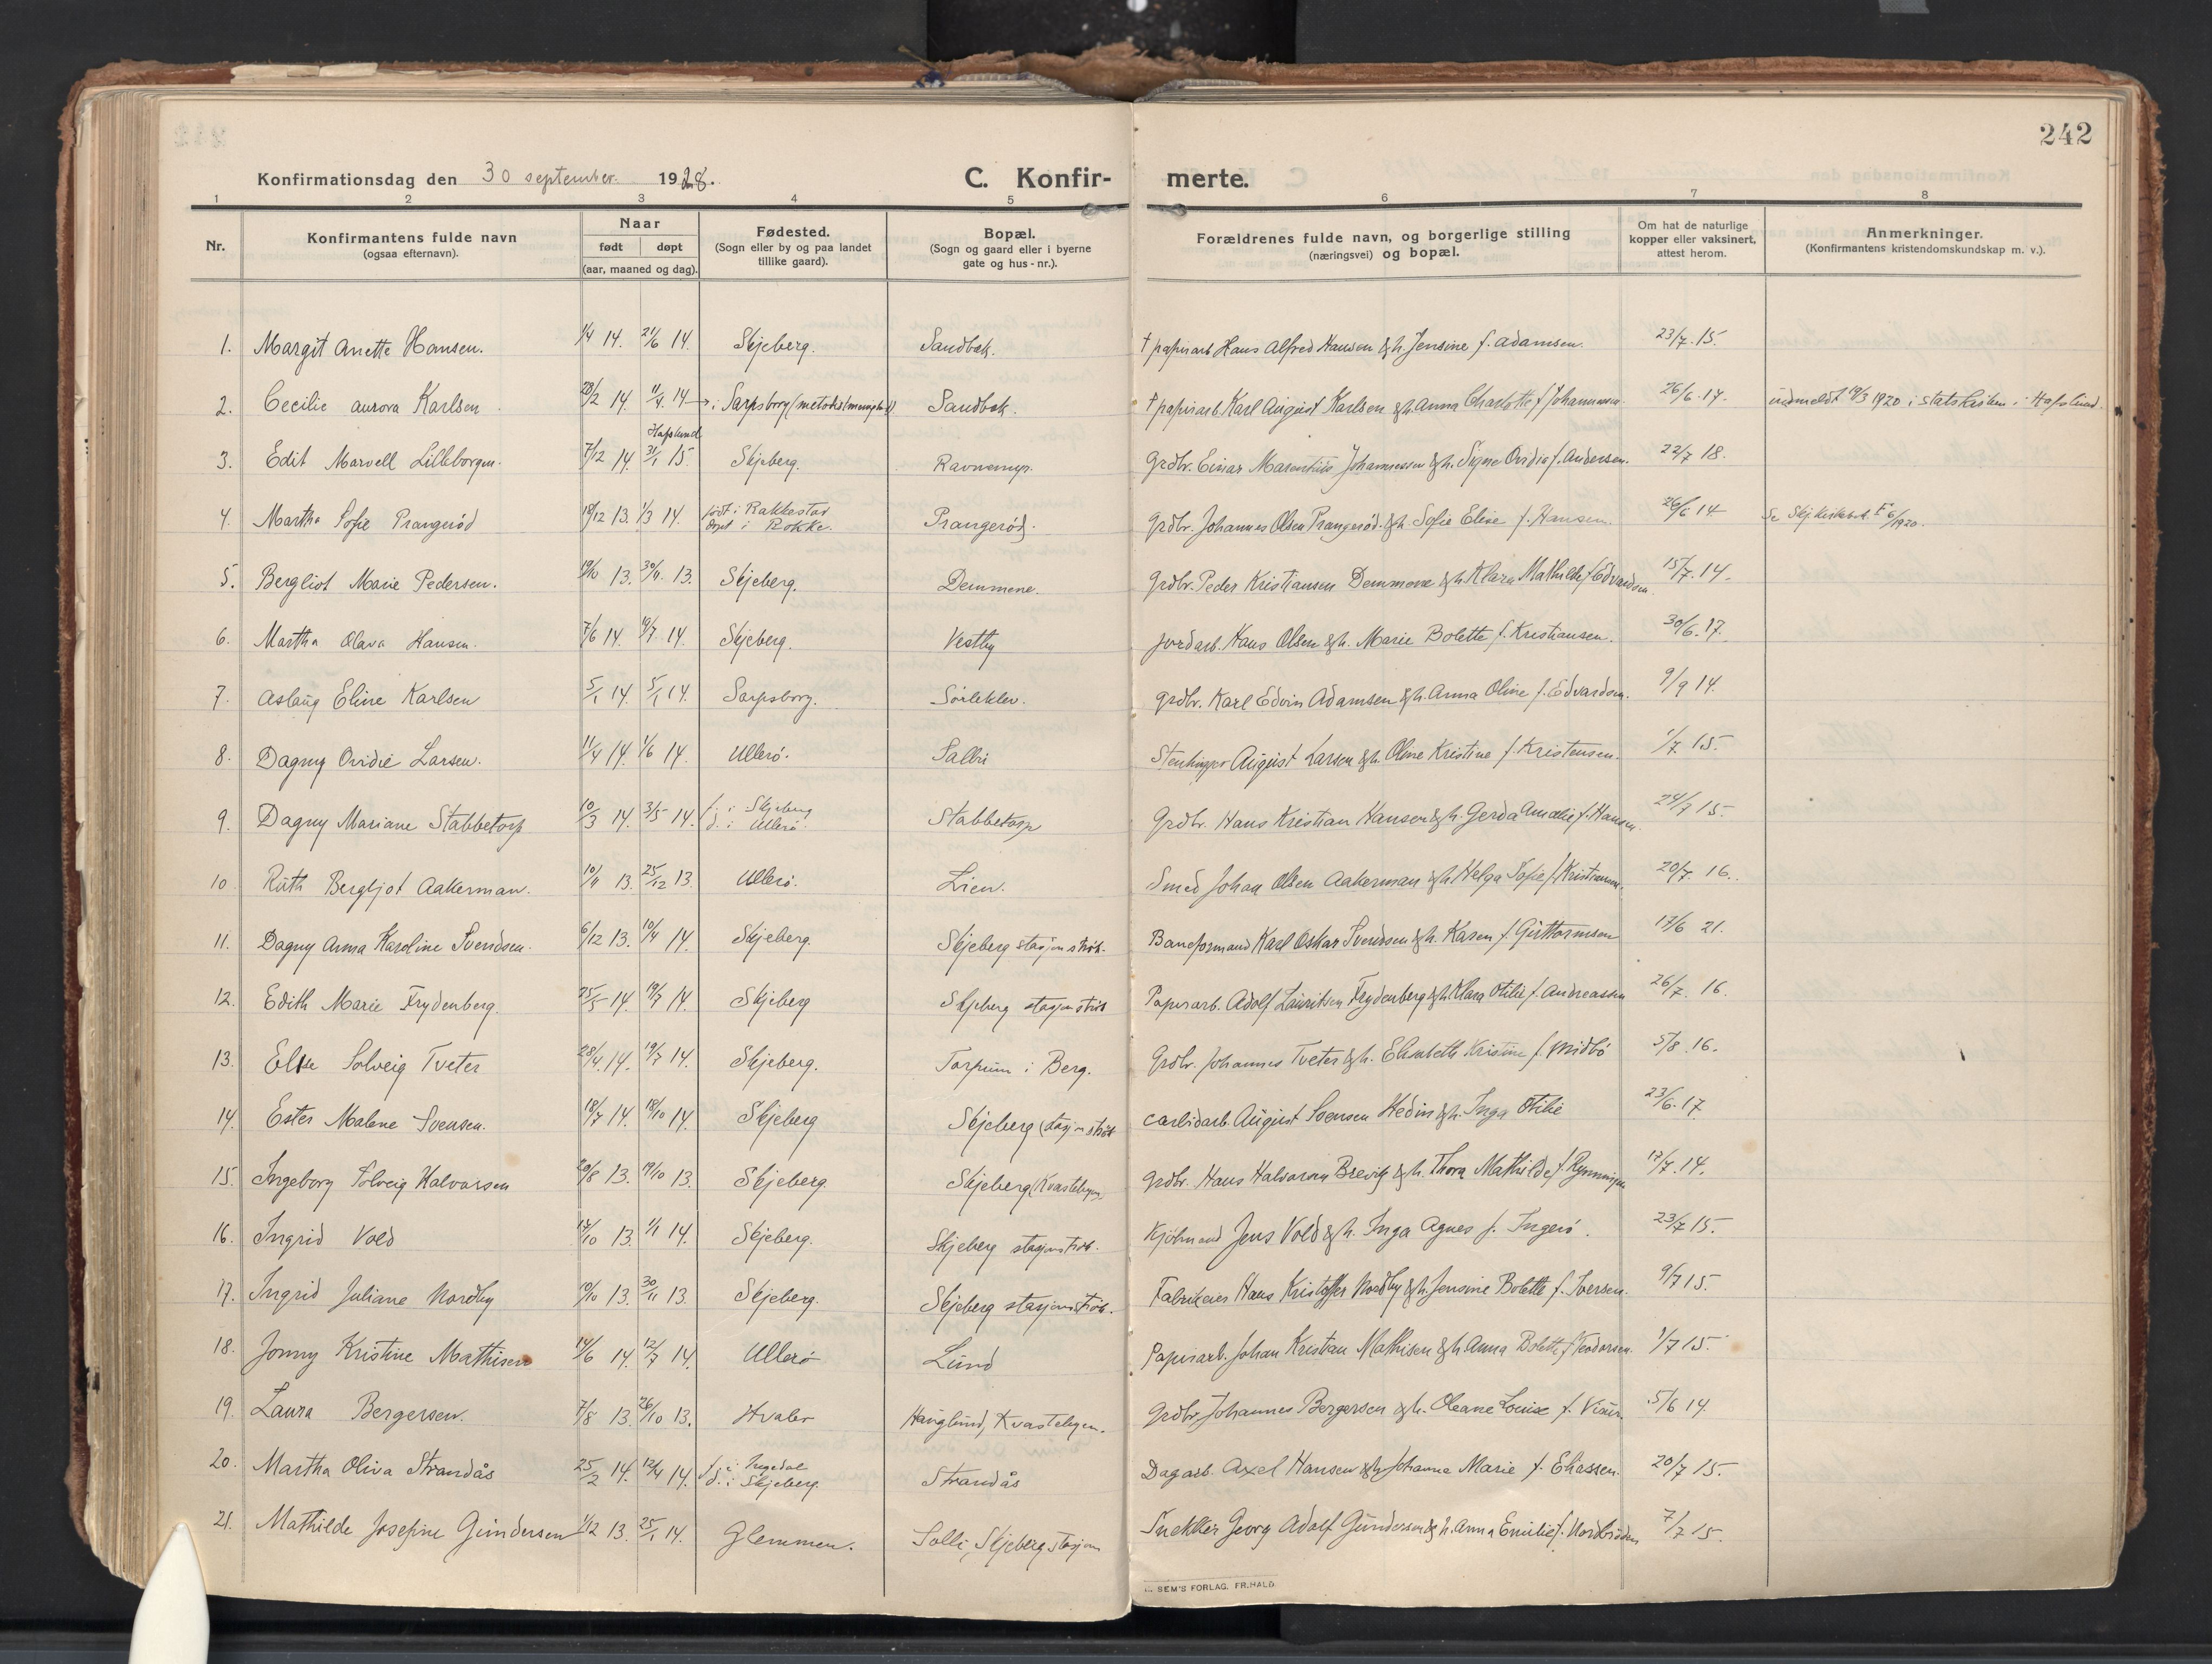 242
Konfirmationsdag den 30 september. 1928. C. Konfir- merte.
1 2 3 4 5 6 7 8
Nr. Konfirmantens fulde navn (ogsaa efternavn). Naar født døpt (aar, maaned og dag). Fødested. (Sogn eller by og paa landet tillike gaard). Bopæl. (Sogn og gaard eller i byerne gate og hus-nr.). Forældrenes fulde navn, og borgerlige stilling (næringsvei) og bopæl. Om hat de naturlige kopper eller vaksinert, attest herom. Anmerkninger. (Konfirmantens kristendomskundskap m. v.).
1. Margit Anette Hansen. 1/4 14. 21/6 14. Skjeberg. Sandbæk. † papirarb Hans Alfred Hansen & h. Jensine f. Adamsen. 23/7. 15.
2. Cecilie Aurora Karlsen 28/2 14. 11/4. 14 i Sarpsborg Sandbæk. † papirarb. Karl August Karlsen & h. Anna Charlotte f. Johannesen. 26/6. 14. indmeldt 19/3 1920 i statskirken i Hafslund.
3. Edit Marvell Lilleborgen. 7/12 14. Hafslund 31/1 15. Skjeberg. Ravnemyr. Grdbr. Einar Marentius Johannessen & h. Signe Ovidia f. Andersen. 22/7 18.
4. Martha Sofie Prangerød 18/12 13. 1/3 14. født i Rakkestad døpt i Rokke. Prangerød. Grdbr. Johannes Olsen Prangerød. & h. Sofie Elise f. Hansen. 26/6 14 Se Skj. 6/1920.
5. Bergliot Marie Pedersen. 19/10 13. 30/11. 13. Skjeberg. Demmene. Grdbr. Peder Kristiansen Demmene & h. Klara Mathilde f. Edvardsen. 15/7. 14.
6. Martha Olava Hansen. 7/6 14. 19/7 14. Skjeberg. Vestby Jordarb. Hans Olsen & h. Marie Bolette f. Kristiansen. 30/6. 17.
7. Aslaug Eline Karlsen 5/1 14. 5/1 14. Sarpsborg. Sørleklev. Grdbr. Karl Edvin Adamsen & h. Anna Oline f. Edvardsen. 9/9 14.
8. Dagny Ovidie Larsen. 11/4 14. 1/6 14. Ullerø. Solli Stenhugger August Larsen & h. Oline Kristine f. Kristensen. 1/7 15.
9. Dagny Mariane Stabbetorp 10/3 14. 3/5 14. f. i Skjeberg d. i Ullerø. Stabbetorp Grdbr. Hans Kristian Hansen & h. Gerda Amalie f. Hansen. 24/7 15.
10. Ruth Bergljot Aakerman. 10/11 13. 25/12 13. Ullerø. Lien. Smed Johan Olsen Aakerman & h. Helga Sofie f. Kristiansen. 20/7. 16.
11. Dagny Anna Karoline Svendsen. 6/12 13. 10/4 14. Skjeberg. Skjeberg stasjonstrøk. Baneformand Karl Oskar Svendsen & h. Karen f. Guttormsen 17/6 21.
12. Edith Marie Frydenberg. 25/5 14. 19/7 14. Skjeberg Skjeberg stasjonstrøk Papirarb. Adolf Lauritsen Frydenberg & h. Klara Otilie f. Andreassen 26/7. 16.
13. Else Solveig Tveter 28/4. 14. 19/7 14. Skjeberg. Torpum i Berg. Grdbr. Johannes Tveter & h. Elisabeth Kristine f. Midbö 5/8. 16.
14. Ester Malene Svensen. 18/7 14. 18/10 14. Skjeberg Skjeberg stasjonstrøk carbidarb. August Svensen Hedin & h. Inga Otilie 23/6. 17.
15. Ingeborg Solveig Halvorsen 20/8 13. 19/10 13. Skjeberg. Skjeberg (Kvastebyen. Grdbr. Hans Halvorsen Brevig & h. Thora Mathilde f. 17/7. 14.
16. Ingrid Vold 17/10 13. 1/1 14. Skjeberg. Skjeberg stasjonstrøk. Kjøbmand Jens Vold & h. Inga Agnes f. Ingerø. 23/7 15.
17. Ingrid Juliane Nordby 19/10 13. 30/11 13. Skjeberg. Skjeberg stasjonstrøk. Fabrikeier Hans Kristoffer Nordby & h. Jensine Bolette f. Iversen. 9/7 15.
18. Jonny Kristine Mathisen 14/6 14. 12/7 14. Ullerø Lund Papirarb. Johan Kristian Mathisen & h. Anna Bolette f. Teodorsen. 1/7 15.
19. Laura Bergersen. 7/8 13. 26/10 13. Hvaler Hauglund, Kvastebyen. Grdbr Johannes Bergersen & h. Oleane Louise f. 5/6 14.
20. Martha Oliva Strandås 25/2 14. 12/4 14. f. i Ingedal d. i Skjeberg. Strandås Dagarb. Axel Hansen & h. Johanne Marie f. Eliassen. 20/7 15.
21. Mathilde Josefine Gundersen 1/12 13. 25/1 14. Glemmen. Solli, Skjeberg stasjon Snekker Georg Adolf Gundersen & h. Anna Emilie f. 7/7 15.
SEM'S FORLAG, FR.HALD.